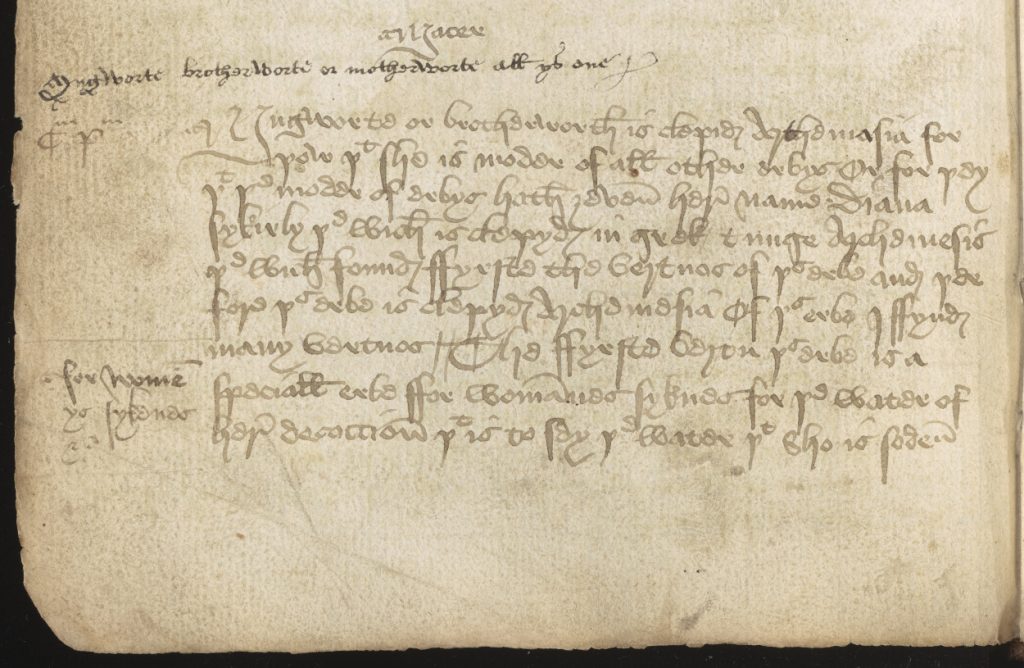 Mater
Mugworte brotherworte or motherworte all ys one
Mugworte or brotherworth is clepid Arthemasia for
þow þt she is moder of all other erbys Or for þey
þt þe moder of erbys hath zevenn her name Diana
sykirly þe wich is clepyd in grek tunge Arthemesis
þe wich found ffyrste the vertuos of þs erbe and þer
fore þs erbe is clepyd Arthemesia Of þs erbe I ffynd
many vertuos / The ffyrste vertu þs erbe is a
for womē
speciall erbe ffor womānes syknes for þe water of
ys sykenes
her decoccioun þt is to sey þe water þt sho is sodenn